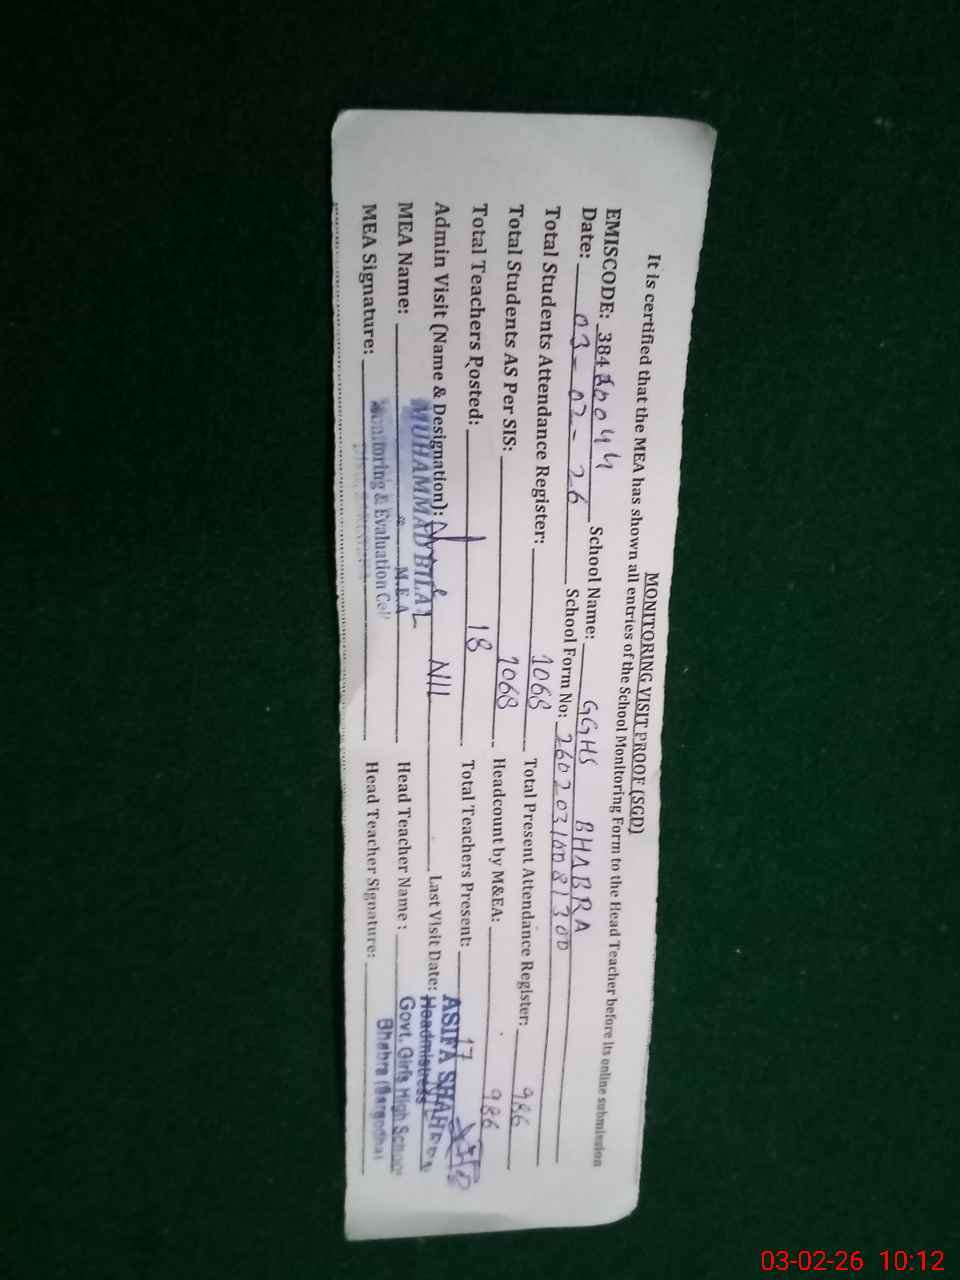 MONITORING VISIT PROOF (SGD)
It is certified that the MEA has shown all entries of the School Monitoring Form to the Head Teacher before its online submission
EMISCODE: School Name: GGHS BHABRA
Date: 03-02-26 School Form No: 26020310081300
Total Students Attendance Register: 1068 Total Present Attendance Register: 986
Total Students AS Per SIS: 1068 Headcount by M&EA: 986
Total Teachers Posted: 18 Total Teachers Present: 17
Admin Visit (Name & Designation): NIL Last Visit Date:
MEA Name: Head Teacher Name :
MEA Signature: Head Teacher Signature:
MUHAMMAD BILAL
M.E.A
Monitoring & Evaluation Cell
ASIFA
Headmistress
Govt. Girls High School
Bhabra (Sargodha)
03-02-26 10:12